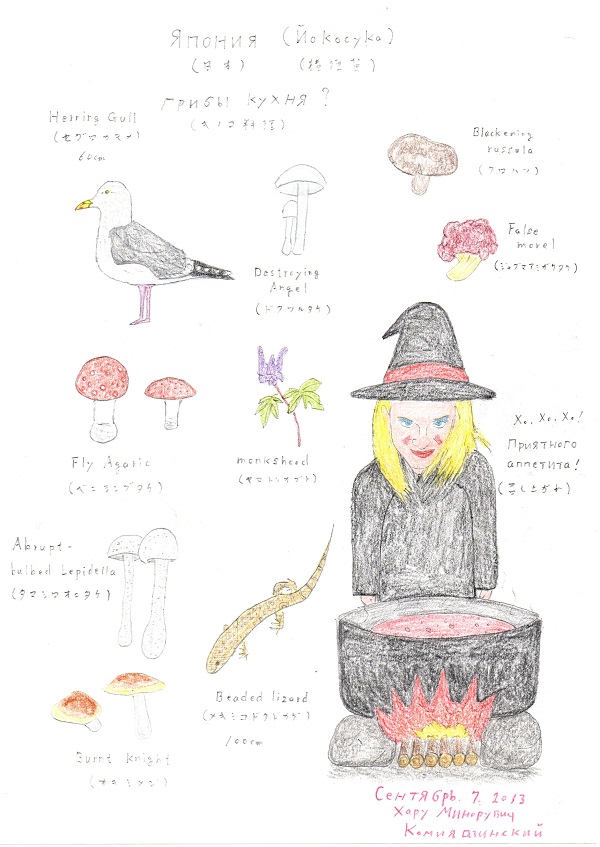 Япония (Йокосука)
(日本) (横須賀)
Грибы кухня?
(キノコ料理)
Herring Gull
(セグロカモメ)
60cm
Blackening
russula
(クロハツ)
Destroying
Angel
(ドクツルタケ)
False
morel
(シャグマアミガサタケ)
Fly Agaric
(ベニテングタケ)
monkshood
(ヤマトリカブト)
Хо, Хо, Хо!
Приятного
аппетита!
(召し上がれ)
Abrupt-
bulbed Lepidella
(タマシロオニタケ)
Beaded lizard
(メキシコドクトカゲ)
100cm
Burnt Knight
Сентябрь. 7. 2013
Хару Минорувич
Комиядзинский